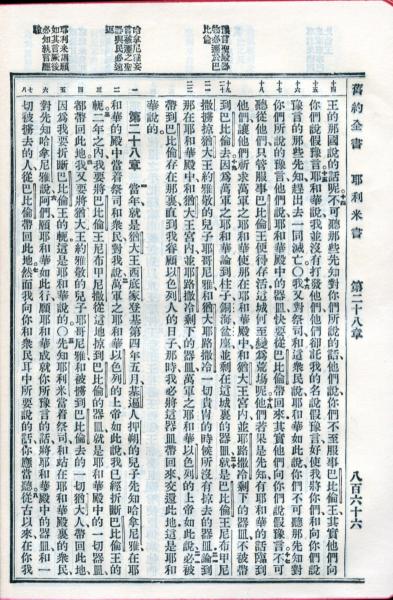 舊約全書 耶利米書 第二十八章 八百六十六
王的那國說的話呢不可聽那些先知對你們所說的話他們說你們不至服事巴比倫王其實他們向
你們說假豫言耶和華說我並沒有打發他們他們卻託我的名說假豫言好使我將你們和向你們說
豫言的那些先知趕出去一同滅亡○我又對祭司和這衆民說耶和華如此說你們不可聽那先知對
你們所說的豫言他們說耶和華殿中的器皿快要從巴比倫帶回來其實他們向你們說假豫言不可
聽從他們只管服事巴比倫王便得存活這城何至變爲荒塲呢他們若果是先知有耶和華的話臨到
他們讓他們祈求萬軍之耶和華使那在耶和華殿中和猶大王宮內並耶路撒冷剩下的器皿不被帶
到巴比倫去因爲萬軍之耶和華論到柱子銅海盆座並剩在這城裏的器皿就是巴比倫王尼布甲尼
撒擄掠猶大王約雅敬的兒子耶哥尼雅和猶大耶路撒冷一切貴冑的時候所沒有掠去的器皿論到
那在耶和華殿中和猶大王宮內並耶路撒冷剩下的器皿萬軍之耶和華以色列的上帝如此說必被
帶到巴比倫存在那裏直到我眷顧以色列人的日子那時我必將這器皿帶回來交還此地這是耶和
華說的
第二十八章 當年就是猶大王西底家登基第四年五月基遍人押朔的兒子先知哈拿尼雅在耶
和華的殿中當着祭司和衆民對我說萬軍之耶和華以色列的上帝如此說我已經折斷巴比倫王的
軛二年之內我要將巴比倫王尼布甲尼撒從這地掠到巴比倫的器皿就是耶和華殿中的一切器皿
都帶回此地我又要將猶大王約雅敬的兒子耶哥尼雅和被擄到巴比倫去的一切猶大人帶回此地
因爲我要折斷巴比倫王的軛這是耶和華說的○先知耶利米當着祭司和站在耶和華殿裏的衆民
先知哈拿尼雅說阿們願耶和華如此行願耶和華成就你所豫言的話將耶和華殿中的器皿和一
切被擄去的人從巴比倫帶回此地然而我向你和衆民耳中所要說的話你應當聽從古以來在你我